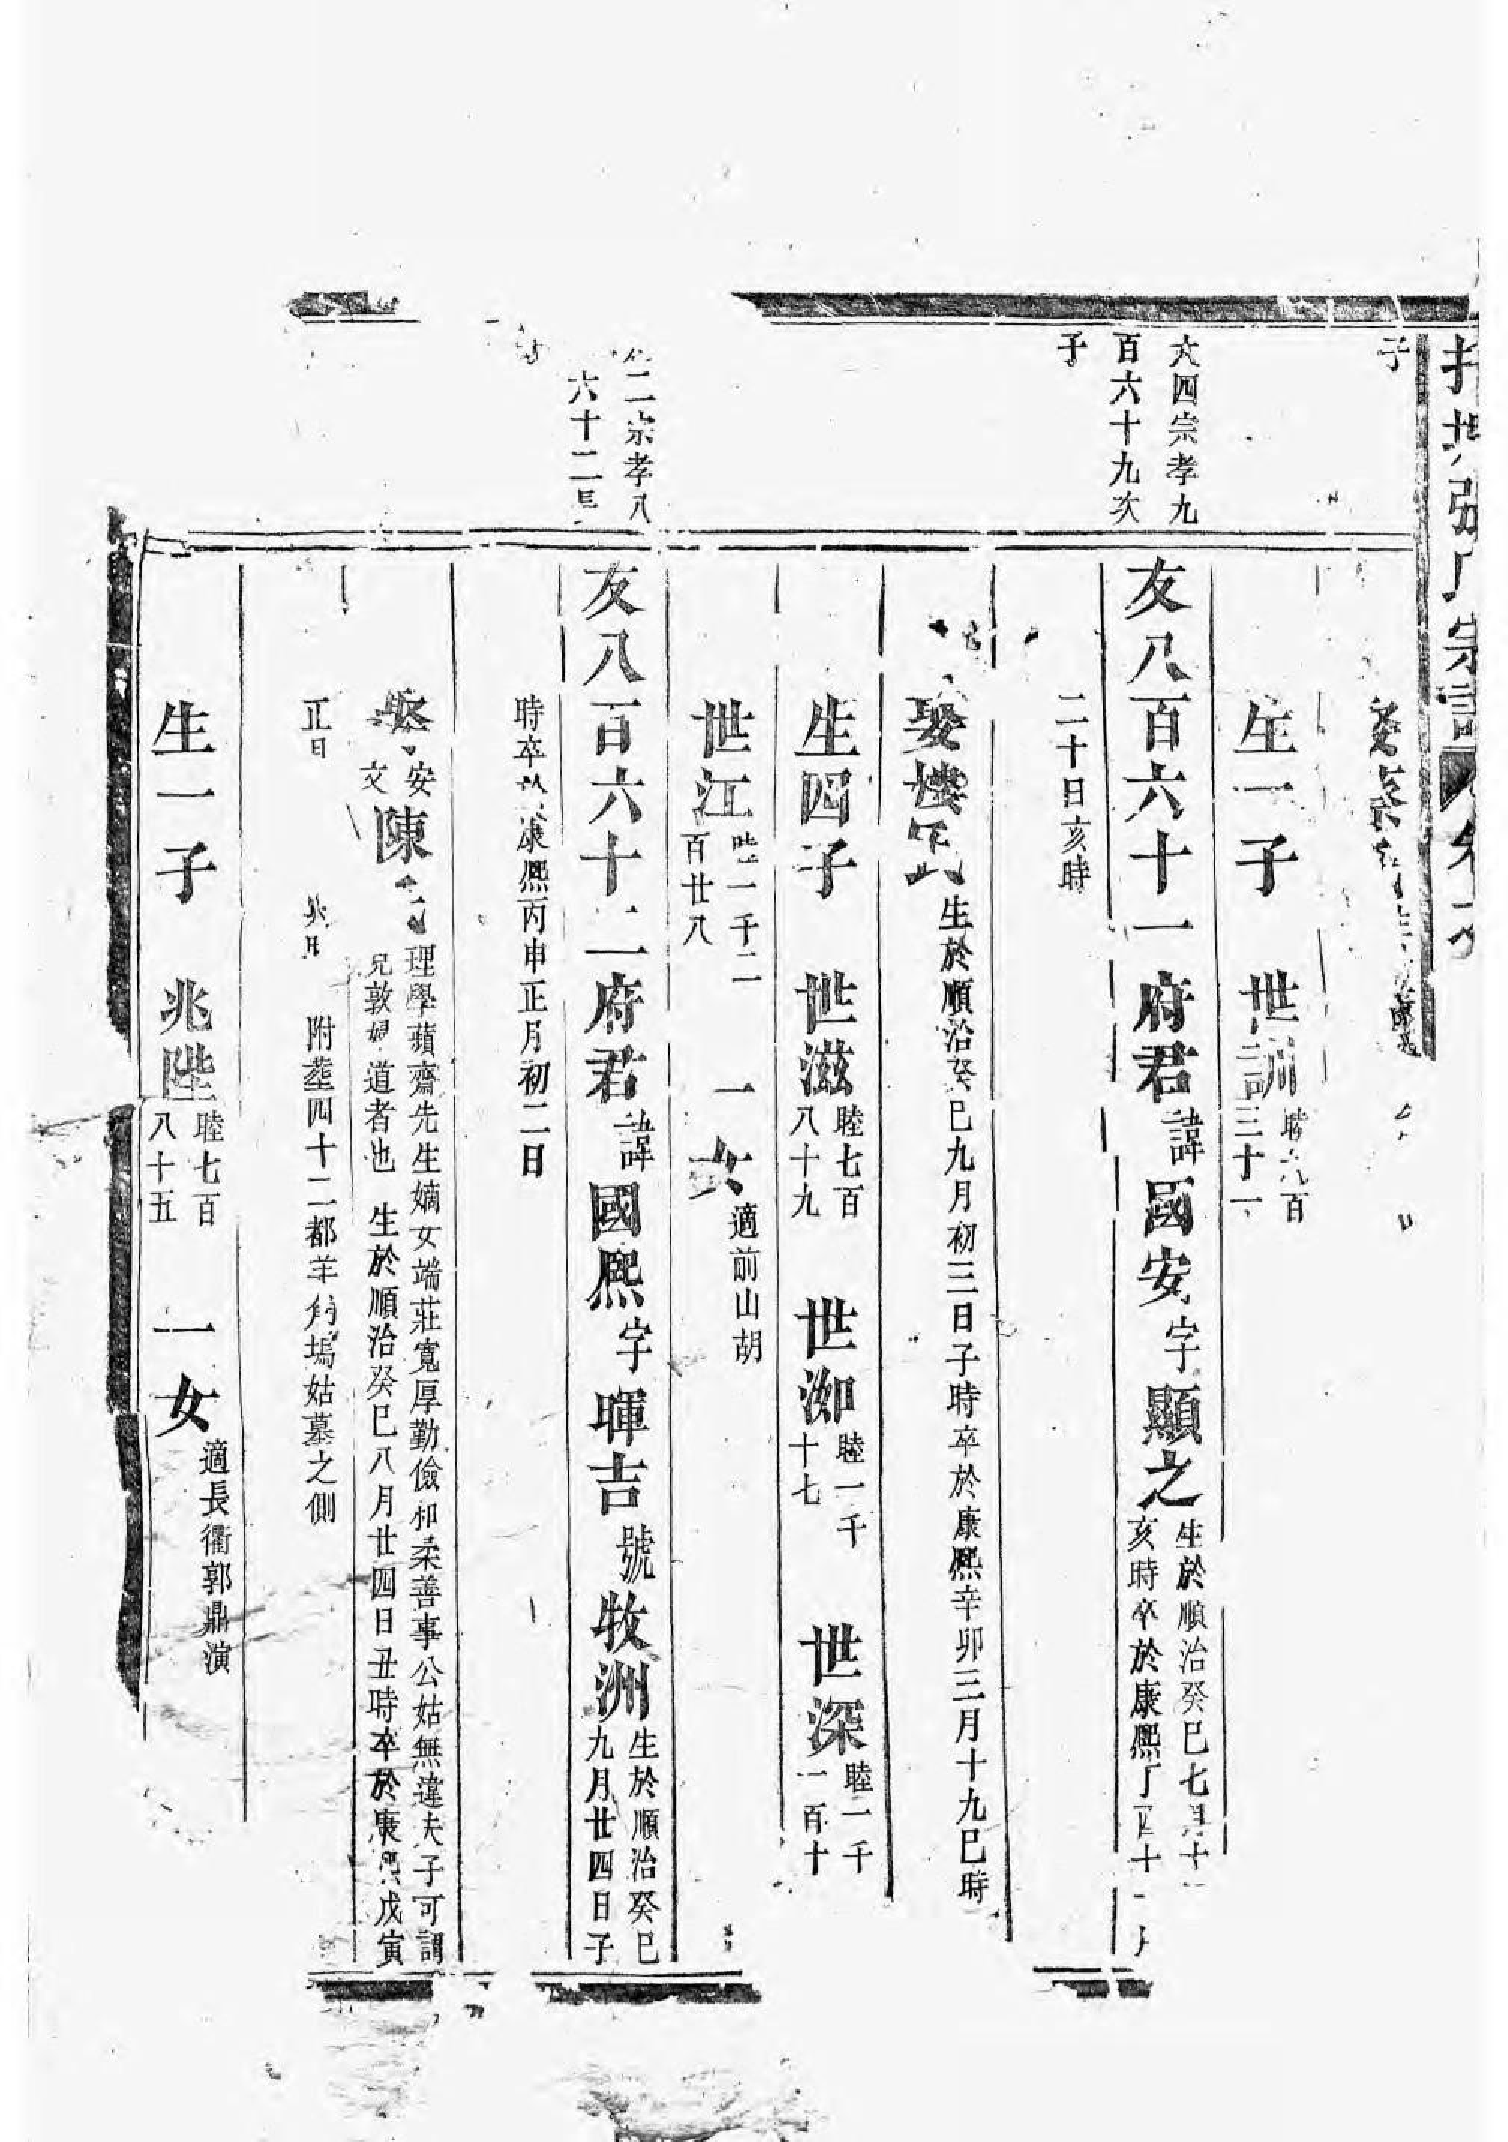 張門宗譜
子
生一子 世
三十一
六四宗孝九
百六十九次
子
友八百六十一府君諱國安字顯之
生於順治癸巳七月十
亥時卒於康熙丁
二十日亥時
娶樓氏生於順治癸巳九月初三日子時卒於康熙辛卯三月十九巳時
生四子 世滋睦七百八十九 世洳睦一千十七 世深睦二千一百十
世江睦一千二百廿八 一女適前山胡
二宗孝八
六十二長
友八百六十二府君諱國熙字暉吉號牧洲
生於順治癸巳
九月廿四日子
時卒於康熙丙申正月初二日
娶安文陳
理學蘋齋先生嫡女端莊寬厚勤儉和柔善事公姑無違夫子可謂
克敦婦道者也 生於順治癸巳八月廿四日丑時卒於康熙戊寅
正月
附葬四十二都羊角塢姑墓之側
生一子 兆陛睦七百八十五 一女適長衢郭鼎演